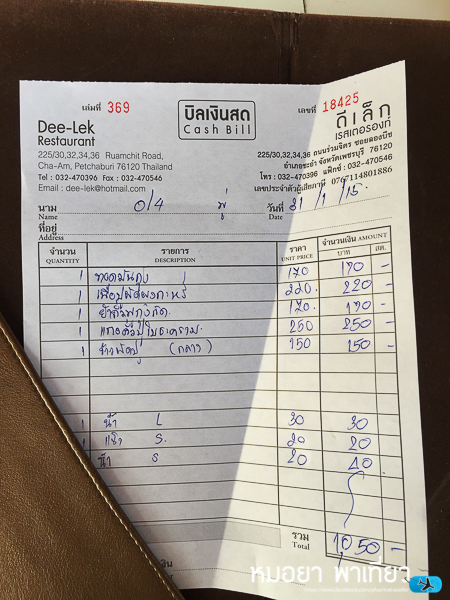 เล่มที่ 369
บิลเงินสด
Cash Bill
เลขที่ 18425
Dee-Lek
Restaurant
225/30,32,34,36 Ruamchit Road,
Cha-Am, Petchaburi 76120 Thailand
Tel : 032-470396 Fax : 032-470546
Email : dee-lek@hotmail.com
ดีเล็ก
เรสเตอรองท์
225/30,32,34,36 ถนนร่วมจิตร ซอยลองบีช
อำเภอชะอำ จังหวัดเพชรบุรี 76120
โทร : 032-470396 แฟ็กซ์ : 032-470546
เลขประจำตัวผู้เสียภาษี 0767114801886
นาม 0/4
Name
วันที่ 21/1/15.
Date
ที่อยู่
Address
จำนวน รายการ ราคา จำนวนเงิน AMOUNT
QUANTITY DESCRIPTION UNIT PRICE บาท สต.
1 ทอดมันกุ้ง 170 170 -
1 220. 220 -
1 170. 170 -
1 250 250 -
1 ข้าวผัดปู (กลาง) 150 150 -
1 น้ำ L 30 30
1 แข็ง S. 20 20
1 น้ำ S 20 40
รวม
Total 1,050 -
หมอยา พาเที่ยว